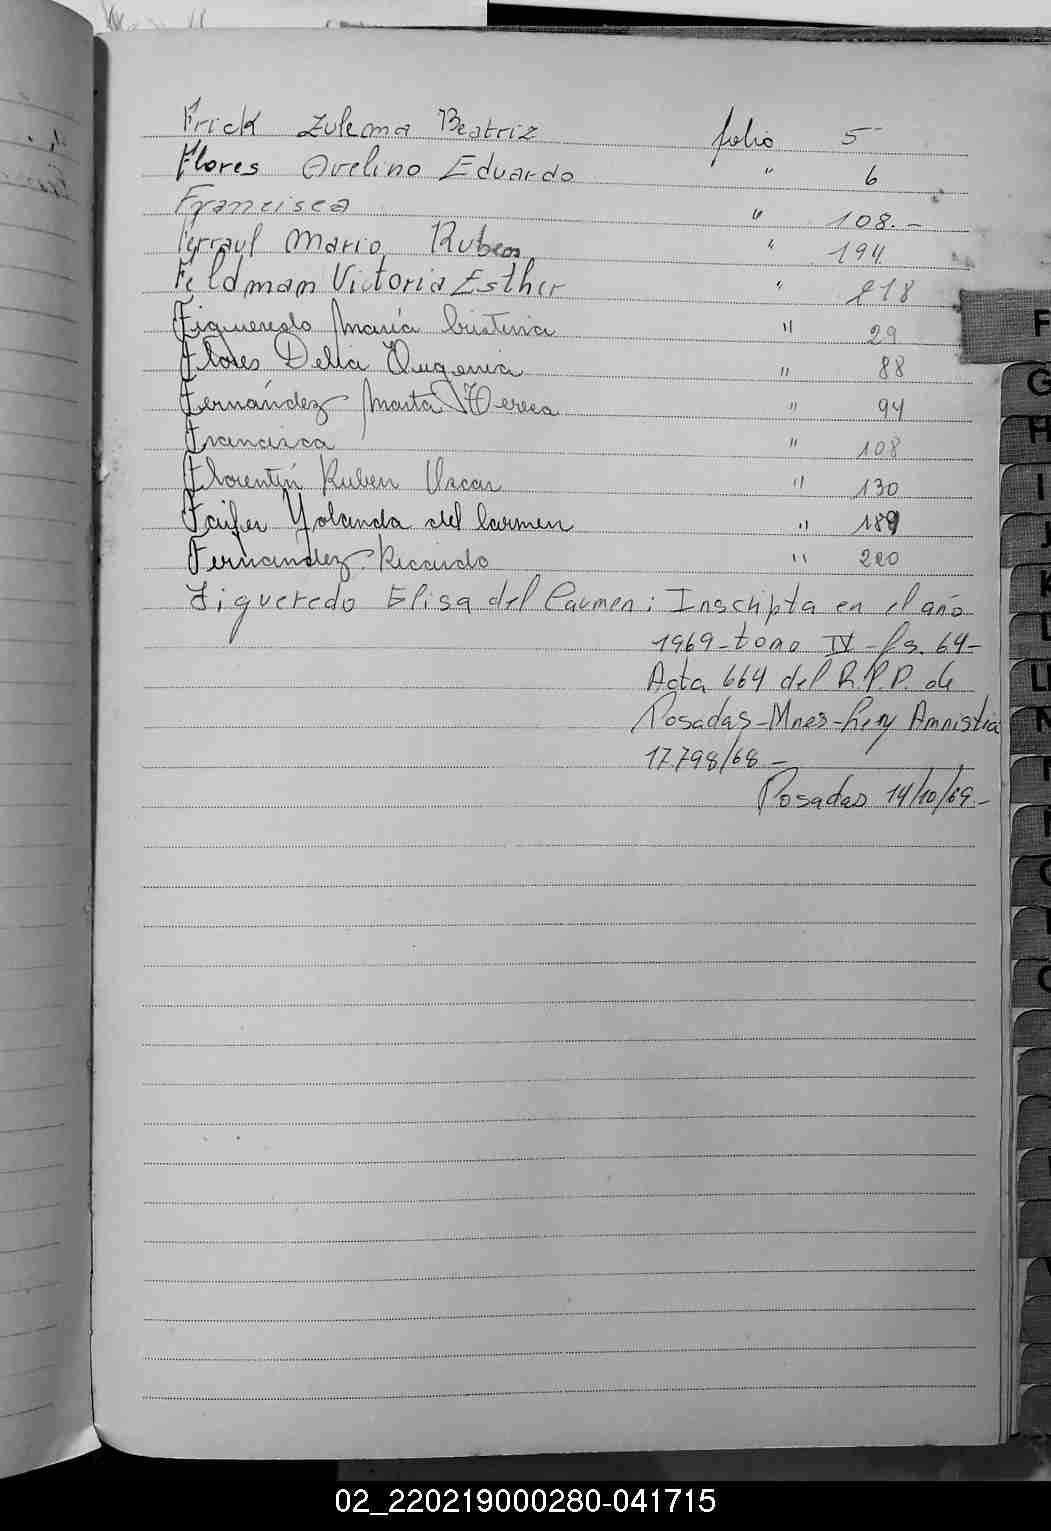 Frick Zulema Beatriz folio 5
Flores Avelino Eduardo " 6
Francisca " 108.-
Ferraul Mario Ruben " 194
Feldman Victoria Esther " 218
Figueredo María Cristina " 29
Flores Delia Eugenia " 88
Fernández Marta Teresa " 94
Francisca " 108
Florentín Ruben Oscar " 130
Faifer Yolanda del Carmen " 189
Fernandez Ricardo " 220
Figueredo Elisa del Carmen: Inscripta en el año
1969-tomo IV-fs. 64-
Acta 664 del R.P.P. de
Posadas-Mnes-Ley Amnistia
17.798/68-
Posadas 14/10/69.-
F
G
H
I
J
K
L
LL
N
02_220219000280-041715